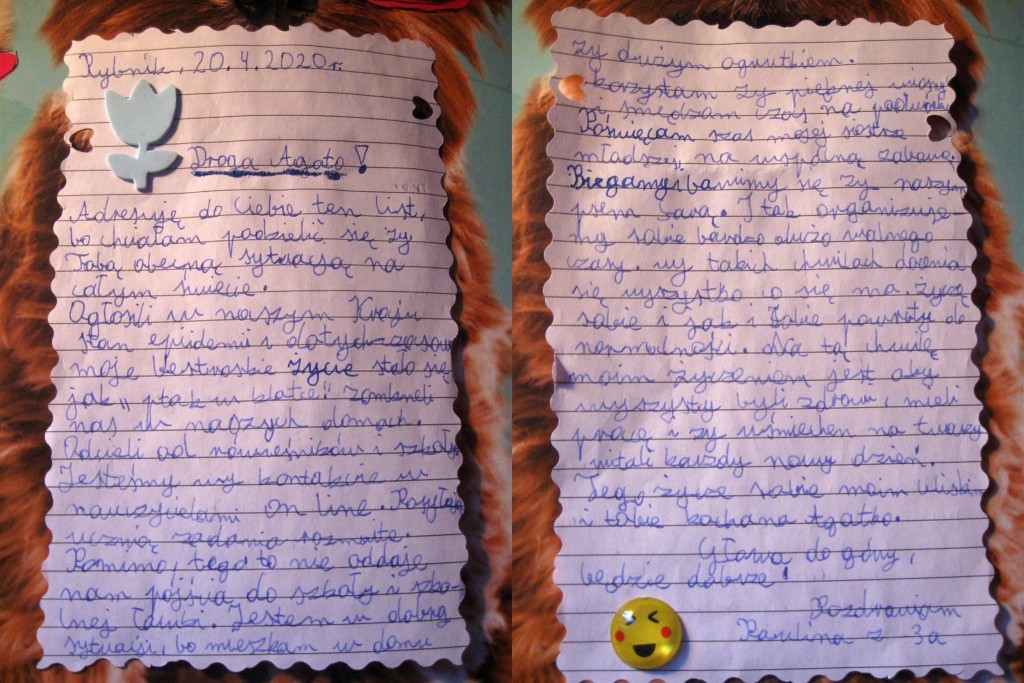 Rybnik, 20.4.2020r.
Droga Agato!
Adresuję do Ciebie ten list,
bo chciałam podzielić się zy
Tobą obecną sytuacją na
całym świecie.
Ogłosili w naszym Kraju
stan epidemii i dotychczasowe
moje beztroskie życie stało się
jak „ptak w klatce". Zamkneli
nas w naszych domach.
Odcieli od rówieśników i szkoły.
Jesteśmy wy kontakcie w
nauczycielami on line.
ucznią zadania rozmaite.
Pomimo, tego to nie oddaje
nam pójścia do szkoły i szko-
lnej ławki. Jestem w dobrej
sytuacji, bo mieszkam w domu
zy dużym ogrutkiem.
korzystam zy pięknej
i spędzam czas na
Poświęcam szas mojej sostsze
młodszej na wspólną zabawę.
Biegamy i bawimy się zy naszym
psem Savą. I tak organizuje-
my sobie bardzo dużo wolnego
czasy. wy takich chwilach docenia
się wyszystko co się ma. Życzę
sobie i jak i Tobie powroty do
normalności. Na tą chwilę
moim życzeniem jest aby
wyszyscy byli zdrowi, mieli
pracę i zy uśmiechen na twarzy
witali każdy nowy dzień.
Tego życze sobie moim bliskim
i tobie kochana Agatko.
Głowa do góry,
będzie dobrze!
Pozdrawiam
Paulina z 3a